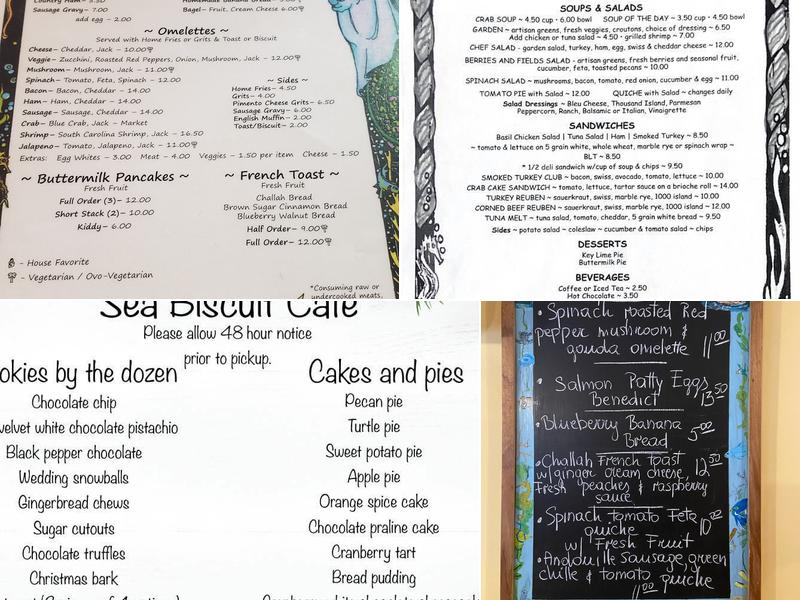 Country Ham- 3.50
Sausage Gravy- 7.00
add egg - 2.00
Bagel- Fruit, Cream Cheese 6.00
~ Omelettes ~
Served with Home Fries or Grits & Toast or Biscuit
Cheese- Cheddar, Jack - 10.00
Veggie- Zucchini, Roasted Red Peppers, Onion, Mushroom, Jack - 12.00
Mushroom- Mushroom, Jack - 11.00
Spinach- Tomato, Feta, Spinach - 12.00
Bacon- Bacon, Cheddar - 14.00
Ham- Ham, Cheddar - 14.00
Sausage- Sausage, Cheddar - 14.00
Crab- Blue Crab, Jack - Market
Shrimp- South Carolina Shrimp, Jack - 16.50
Jalapeno- Tomato, Jalapeno, Jack - 11.00
Extras: Egg Whites - 3.00 Meat - 4.00 Veggies - 1.50 per item Cheese - 1.50
~ Sides ~
Home Fries- 4.50
Grits- 4.00
Pimento Cheese Grits- 6.50
Sausage Gravy- 6.00
English Muffin- 2.00
Toast/Biscuit- 2.00
~ Buttermilk Pancakes ~
Fresh Fruit
Full Order (3)- 12.00
Short Stack (2)- 10.00
Kiddy- 6.00
~ French Toast ~
Fresh Fruit
Challah Bread
Brown Sugar Cinnamon Bread
Blueberry Walnut Bread
Half Order- 9.00
Full Order- 12.00
- House Favorite
- Vegetarian / Ovo-Vegetarian
*Consuming raw or
undercooked meats,
SOUPS & SALADS
CRAB SOUP ~ 4.50 cup • 6.00 bowl SOUP OF THE DAY ~ 3.50 cup • 4.50 bowl
GARDEN ~ artisan greens, fresh veggies, croutons, choice of dressing ~ 6.50
Add chicken or tuna salad ~ 4.50 • grilled shrimp ~ 7.00
CHEF SALAD - garden salad, turkey, ham, egg, swiss & cheddar cheese ~ 12.00
BERRIES AND FIELDS SALAD - artisan greens, fresh berries and seasonal fruit,
cucumber, feta, toasted pecans ~ 10.00
SPINACH SALAD ~ mushrooms, bacon, tomato, red onion, cucumber & egg ~ 11.00
TOMATO PIE with Salad ~ 12.00 QUICHE with Salad ~ changes daily
Salad Dressings ~ Bleu Cheese, Thousand Island, Parmesan
Peppercorn, Ranch, Balsamic or Italian, Vinaigrette
SANDWICHES
Basil Chicken Salad | Tuna Salad | Ham | Smoked Turkey ~ 8.50
~ tomato & lettuce on 5 grain white, whole wheat, marble rye or spinach wrap ~
BLT ~ 8.50
* 1/2 deli sandwich w/cup of soup & chips ~ 9.50
SMOKED TURKEY CLUB ~ bacon, swiss, avocado, tomato, lettuce ~ 10.00
CRAB CAKE SANDWICH ~ tomato, lettuce, tartar sauce on a brioche roll ~ 14.00
TURKEY REUBEN ~ sauerkraut, swiss, marble rye, 1000 island ~ 10.00
CORNED BEEF REUBEN ~ sauerkraut, swiss, marble rye, 1000 island ~ 12.00
TUNA MELT ~ tuna salad, tomato, cheddar, 5 grain white bread ~ 9.50
Sides ~ potato salad ~ coleslaw ~ cucumber & tomato salad ~ chips
DESSERTS
Key Lime Pie
Buttermilk Pie
BEVERAGES
Coffee or Iced Tea ~ 2.50
Hot Chocolate ~ 3.50
Sea Biscuit Cafe
Please allow 48 hour notice
prior to pickup.
okies by the dozen
Chocolate chip
velvet white chocolate pistachio
Black pepper chocolate
Wedding snowballs
Gingerbread chews
Sugar cutouts
Chocolate truffles
Christmas bark
Cakes and pies
Pecan pie
Turtle pie
Sweet potato pie
Apple pie
Orange spice cake
Chocolate praline cake
Cranberry tart
Bread pudding
• Spinach roasted Red
pepper mushroom &
gouda omelette 11.00
• Salmon Patty Eggs
Benedict 13.50
• Blueberry Banana
Bread 5.00
• Challah French Toast
w/ ginger cream cheese, 12.50
Fresh peaches & raspberry
sauce
• Spinach Tomato Feta
quiche 10.00
w/ Fresh Fruit
• Andouille Sausage, green
chile & tomato quiche
11.00